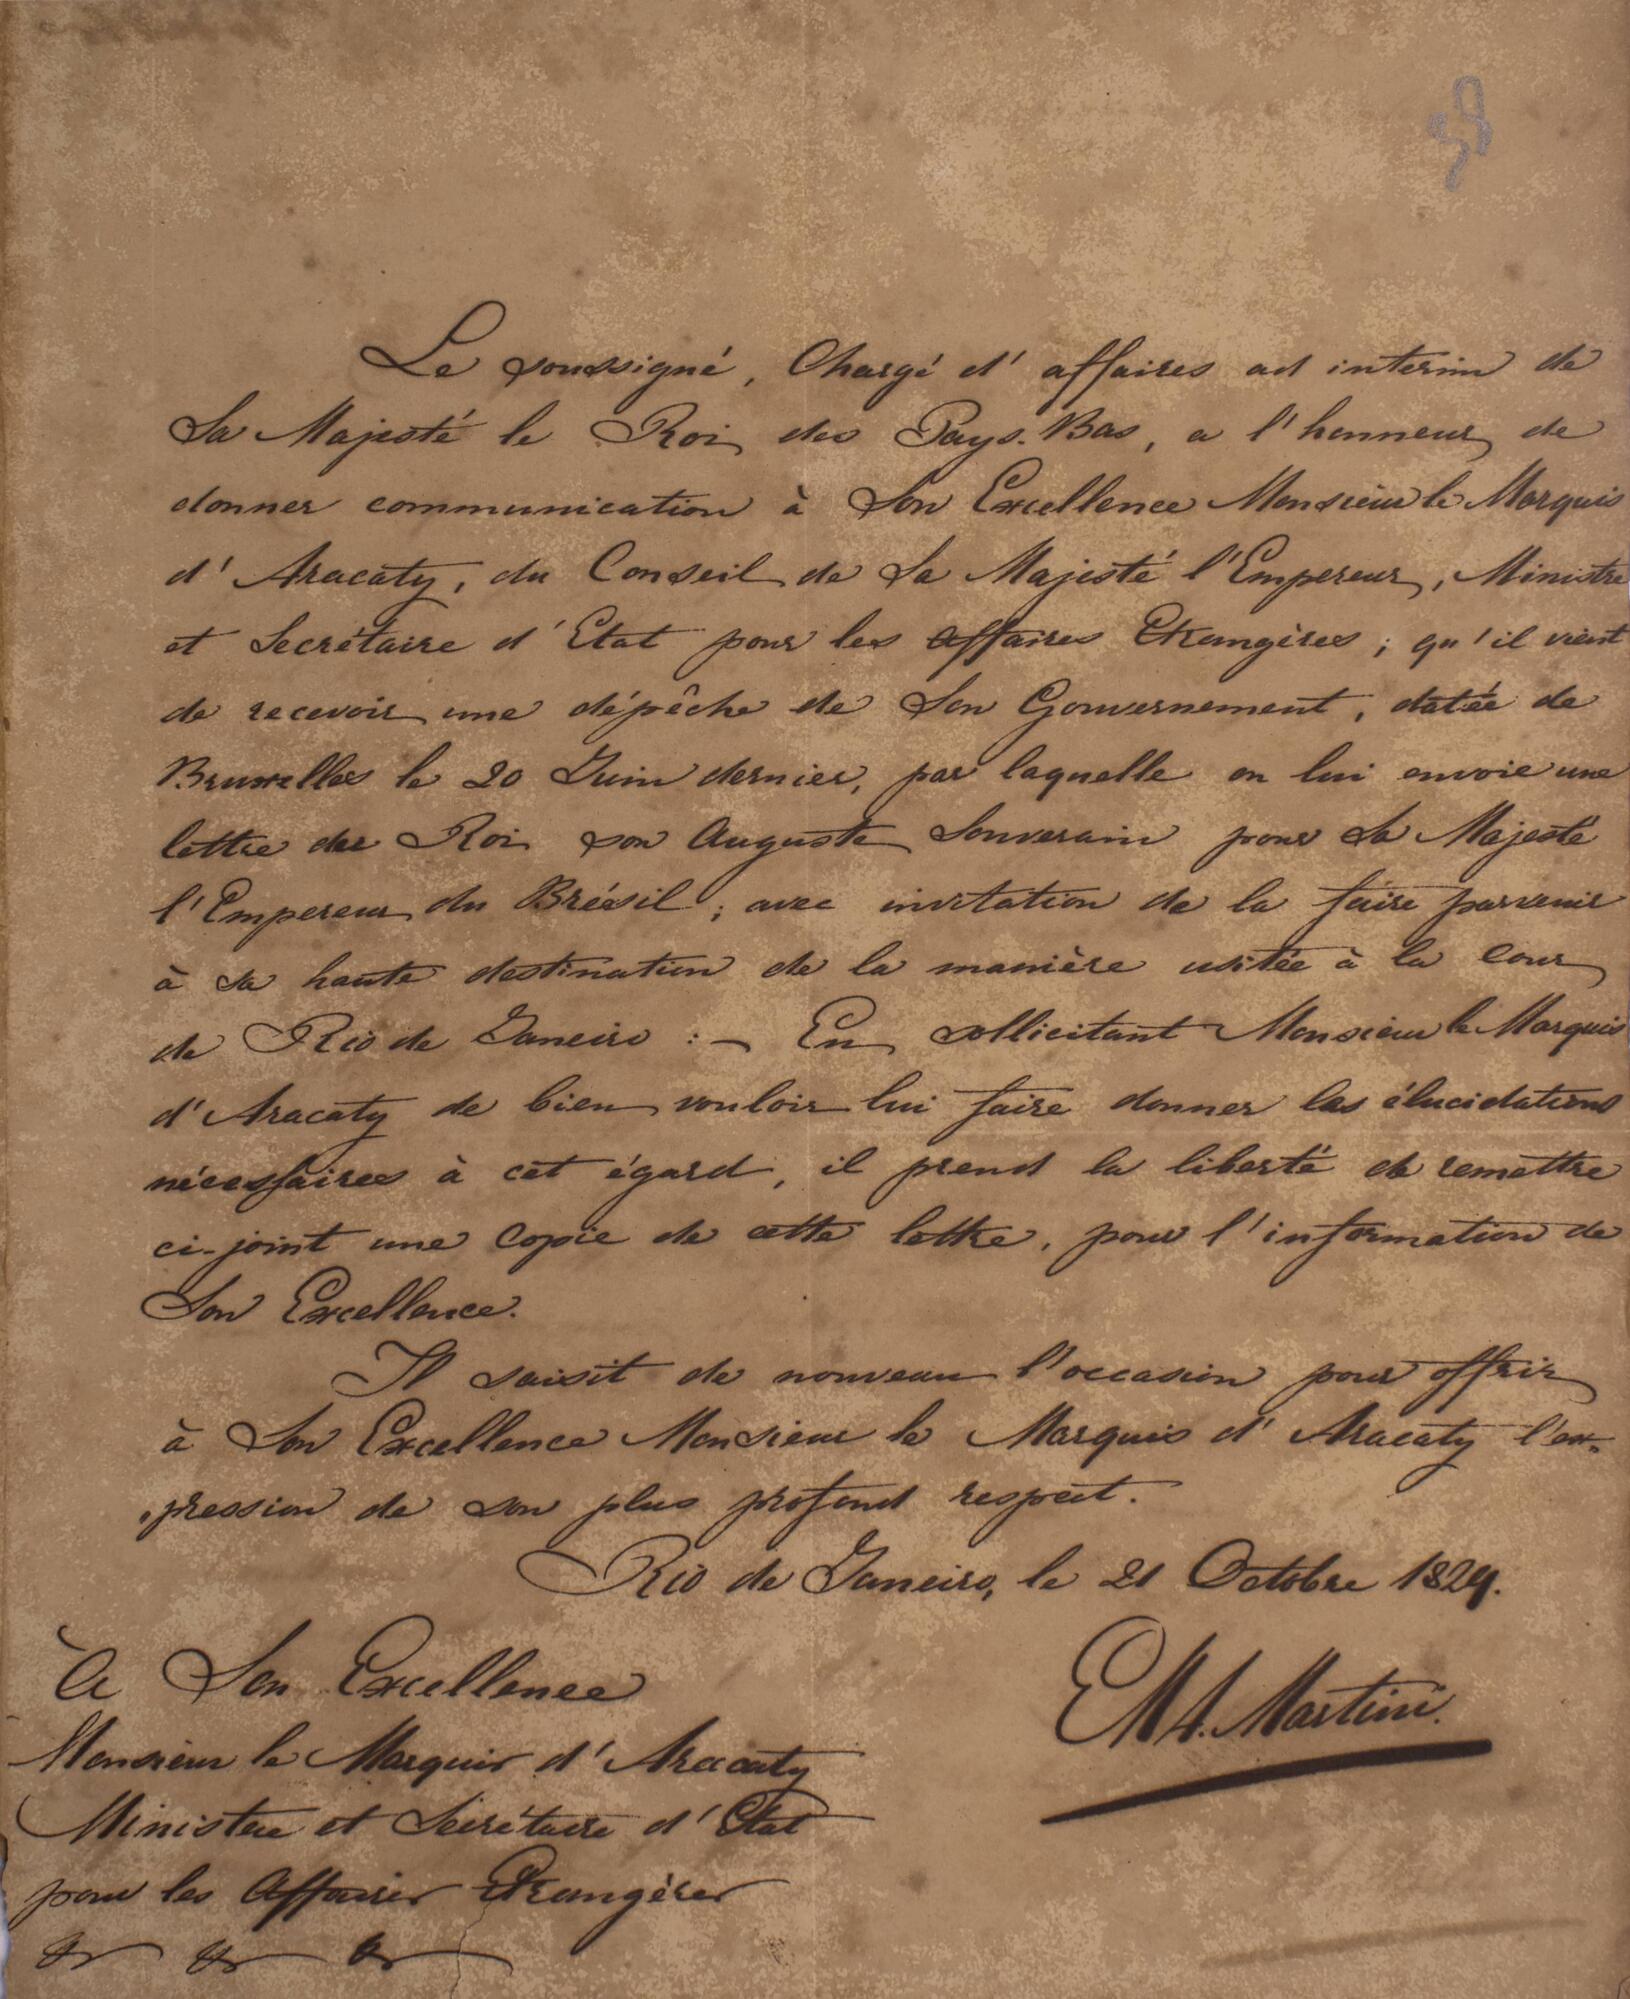 Le soussigné, Chargé d'affaires ad interim de
Sa Majesté le Roi des Pays-Bas, a l'honneur de
donner communication à Son Excellence Monsieur le Marquis
d'Aracaty, du Conseil de Sa Majesté l'Empereur, Ministre
et Secrétaire d'Etat pour les Affaires Etrangères; qu'il vient
de recevoir une dépêche de Son Gouvernement, datée de
Bruxelles le 20 Juin dernier, par laquelle on lui envoie une
lettre du Roi son Auguste Souverain pour Sa Majesté
l'Empereur du Brésil; avec invitation de la faire parvenir
à sa haute destination de la manière usitée à la cour
de Rio de Janeiro :— En sollicitant Monsieur le Marquis
d'Aracaty de bien vouloir lui faire donner les élucidations
nécessaires à cet égard, il prend la liberté de remettre
ci-joint une copie de cette lettre, pour l'information de
Son Excellence.
Il saisit de nouveau l'occasion pour offrir
à Son Excellence Monsieur le Marquis d'Aracaty l'ex-
pression de son plus profond respect.
Rio de Janeiro, le 21 Octobre 1829.
À Son Excellence
Monsieur le Marquis d'Aracaty
Ministre et Secrétaire d'Etat
pour les Affaires Etrangères
&r &r &r
Martini.